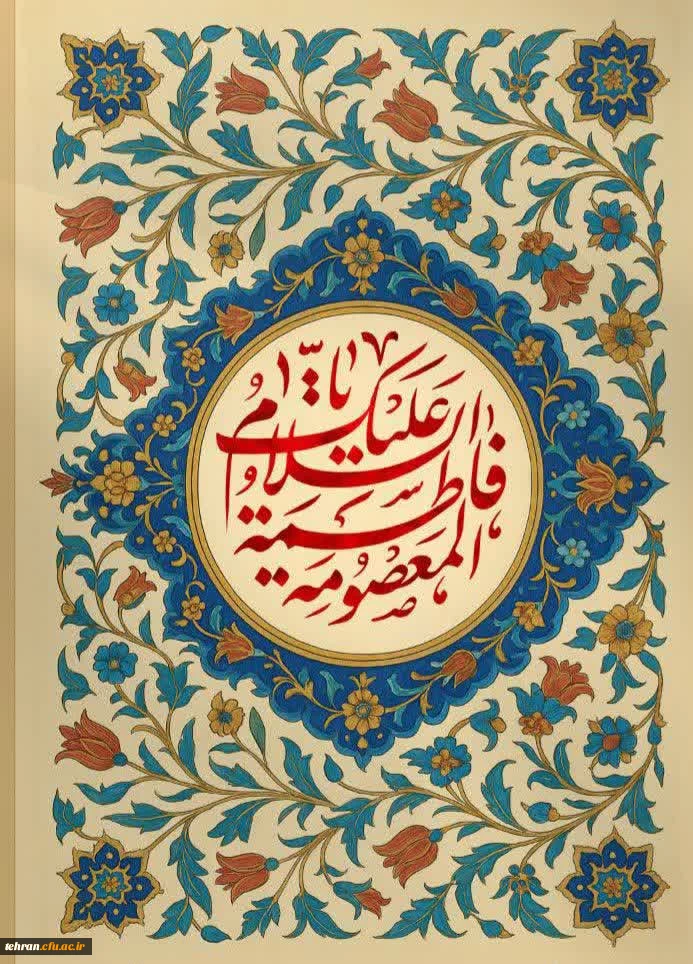 السلام علیک یا
فاطمة
المعصومه
tehran.cfu.ac.ir